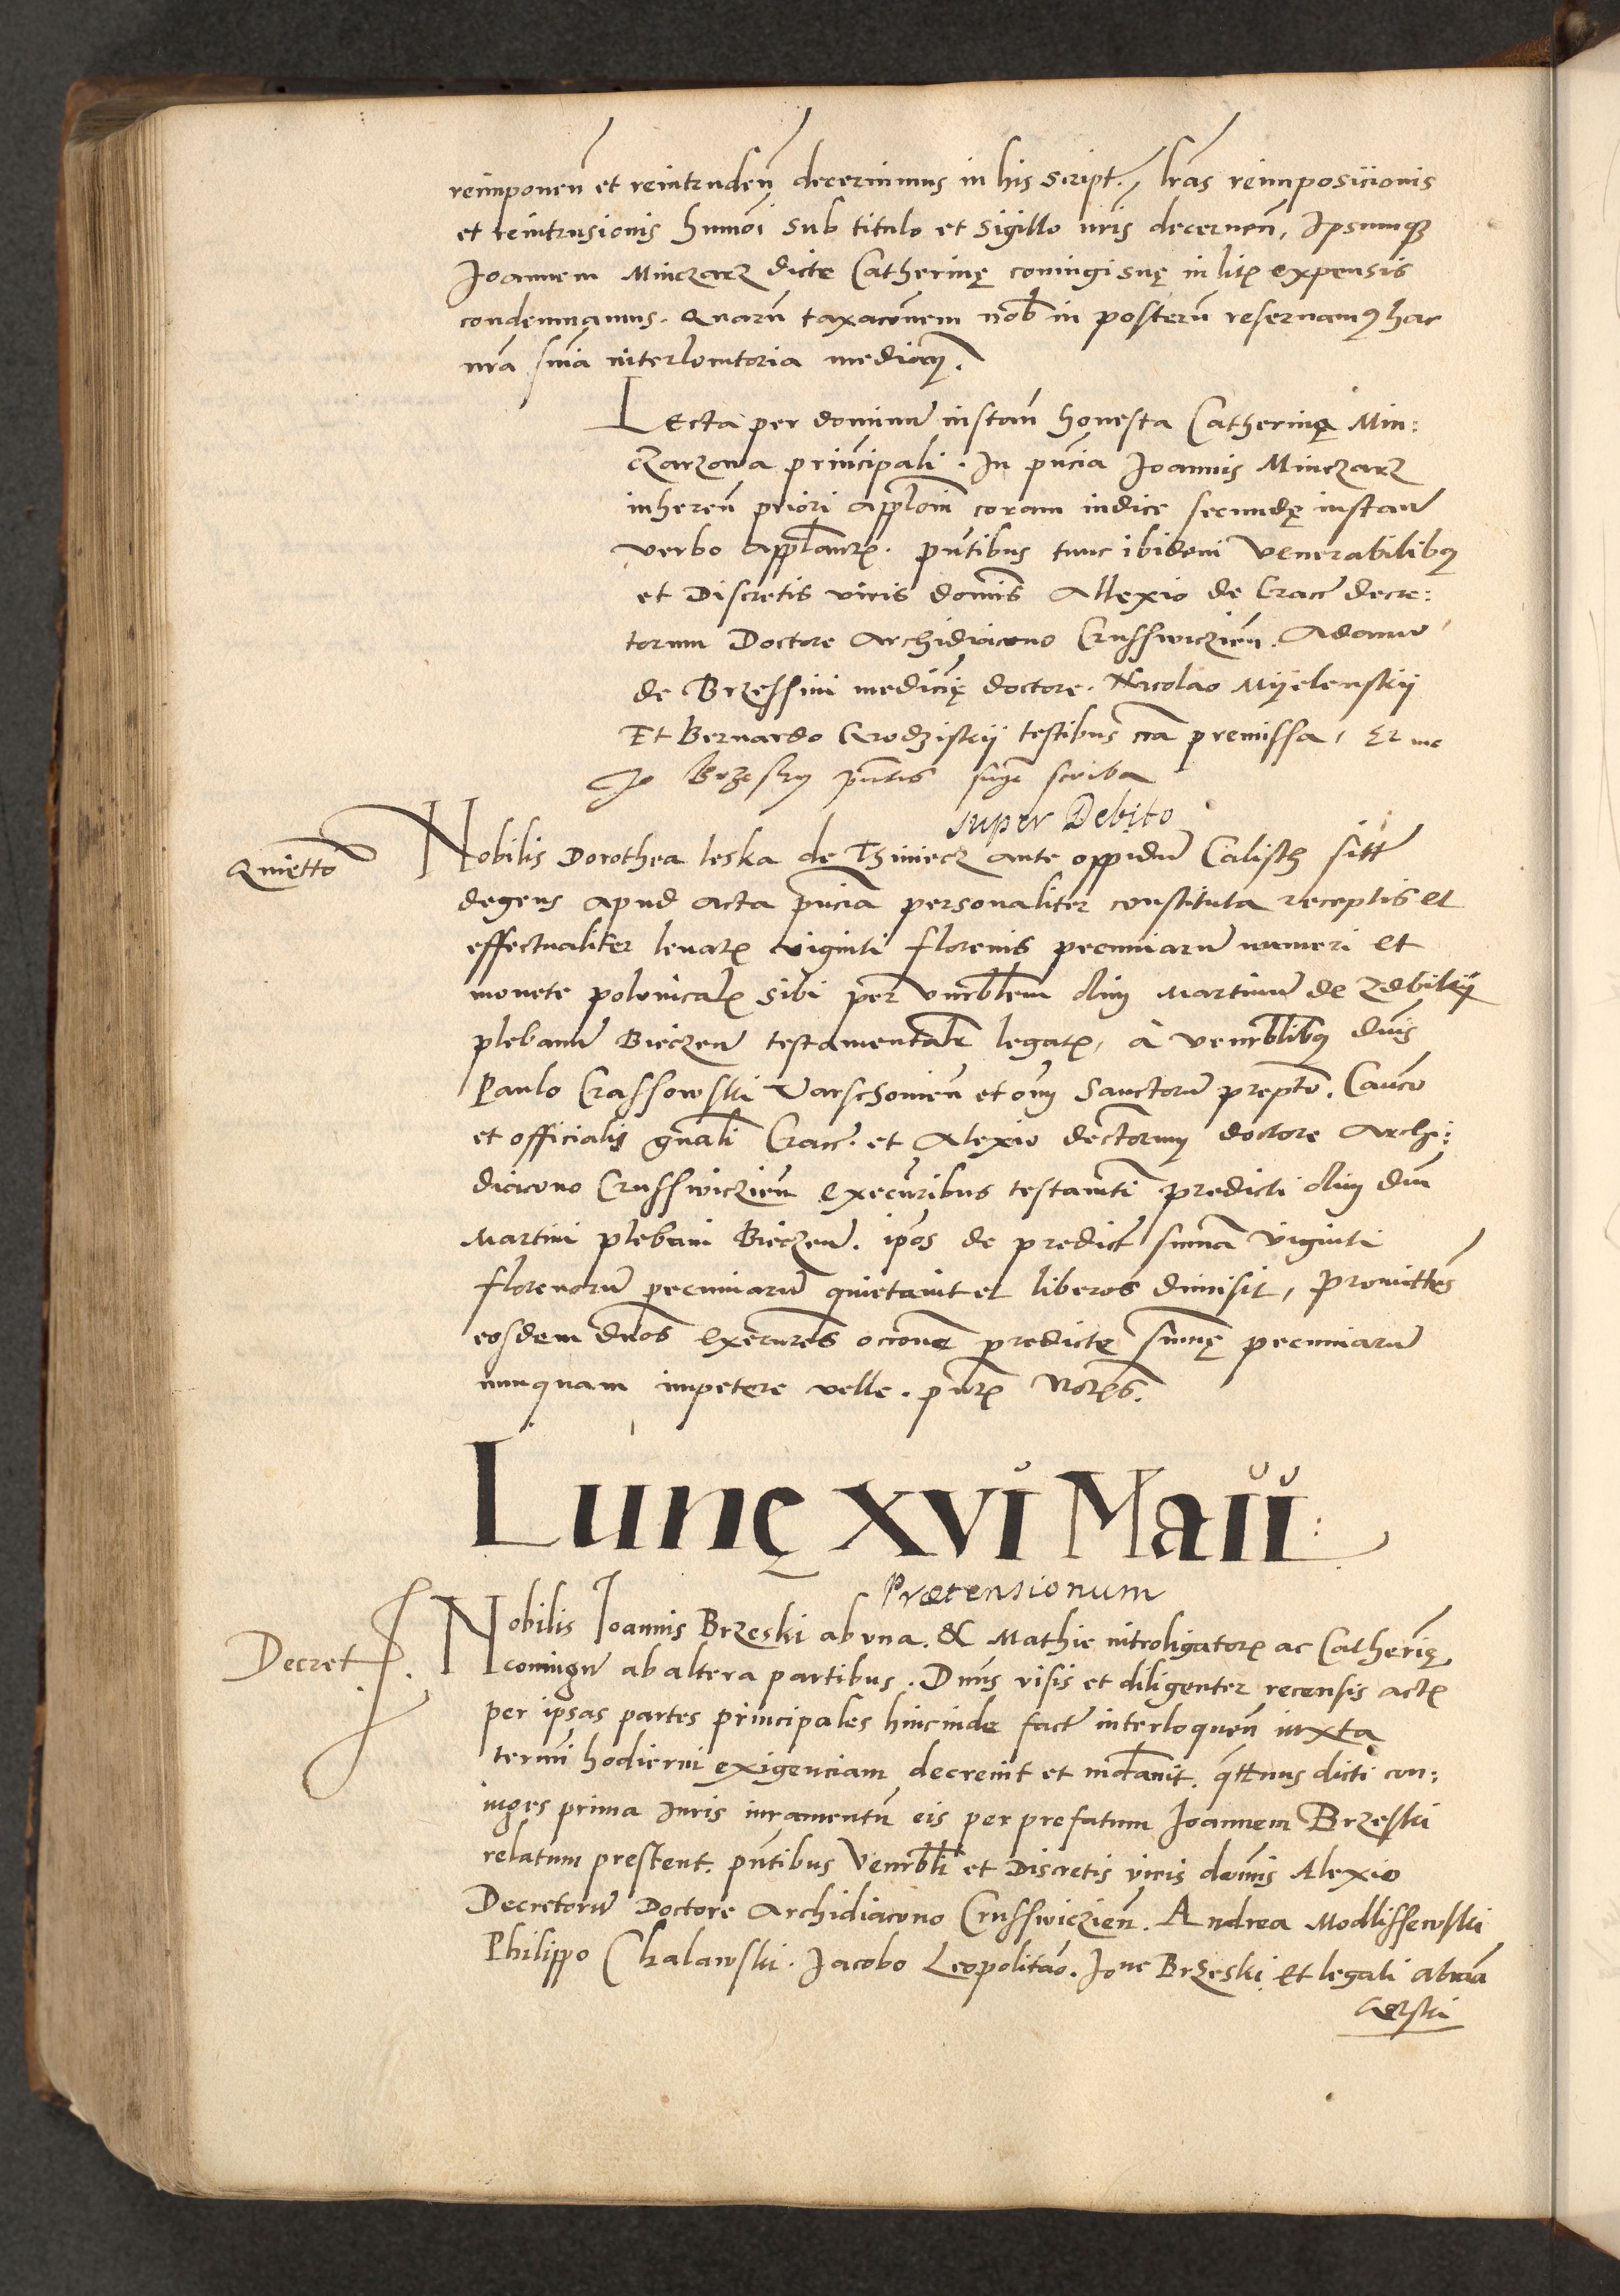 reimponen̄ et reintruden̄ decernimus in his script. / lr̄as reimposicionis
et reintrusionis hm̄oi sub titulo et sigillo nr̄is decernen̄, Ipsumq3
Joannem Minczarz dictę Catherinę coniugi suę in litꝭ expensis
condemnamus. Quarū taxacōnem nob̄ in posterū reseruamꝰ hac
nr̄a snīa interlocutoria median̄.
Lecta per dominū instan̄ honesta Catherinę Min:
czarzowa principali. In pn̄cia Joannis Minczarz
inheren̄ priori applōni coram iudice secundę instan̄
verbo applan̄tꝭ. pn̄tibus tunc ibidem Venerabilibꝰ
et Discretis viris domīs Allexio de Crac̄ decre:
torum Doctore Archidiacono Crusswiczien̄. Adamo
de Brzessini medicīę doctore. Nicolao Myelenskij
Et Bernardo Grodziskij testibus cīa premissa, Et me
Jo Brzesky pn̄tis scriba
super Debito
Quiettō
Nobilis Dorothea leska de Thiniecz ante oppidū Calisch sitt̄
degens apud acta pn̄cia personaliter constituta receptis et
effectualiter leuatꝭ viginti florenis pecuniarū numeri et
monete polonicalꝭ sibi per vnrb̄lem olim Martinū de Zdbikij
plebanū Bieczen̄ testamentalr̄ legatꝭ, à venrb̄libꝰ dn̄is
Paulo Crassowski Varschouien̄ et om̄ Sanctorū prept̄o. Canco
et officialis gn̄ali Crac̄. et Alexio dec̄torum doctore Archi:
diacono Crusswiczien̄ execūribus testam̄ti predicti olim dn̄i
Martini plebani Bieczen̄. ip̄os de predict̄ sum̄a viginti
florenorū pecuniarū quietauit et liberos dimisit, Promittēs
eosdem dn̄os execūres occōne predictę sum̄ę pecuniarū
nunquam impetere velle. pn̄tꝭ Notꝭs.
Lunę XVI Maii
Prætensionum
Decret.
Nobilis Joannis Brzeski ab vna. & Mathie introligatorꝭ ac Catherīę
coniugū ab altera partibus. Dnn̄s visis et diligenter recensis actꝭ
per ipsas partes principales hincinde fact̄ interloquen̄ iuxta
termī hodierni exigenciam decreuit et mdāuit. qt̄tenus dicti con:
iuges prima Juris iuramentū eis per prefatum Joannem Brzeski
relatum prestent. pn̄tibus Venrb̄li et Discretis viris domīs Alexio
Decretorū Doctore Archidiacono Crusswiczien̄. Andrea Modlissewski
Philippo Chalawski. Jacobo Leopolitāo. Jone Brzeski et legali abraā
Gorski